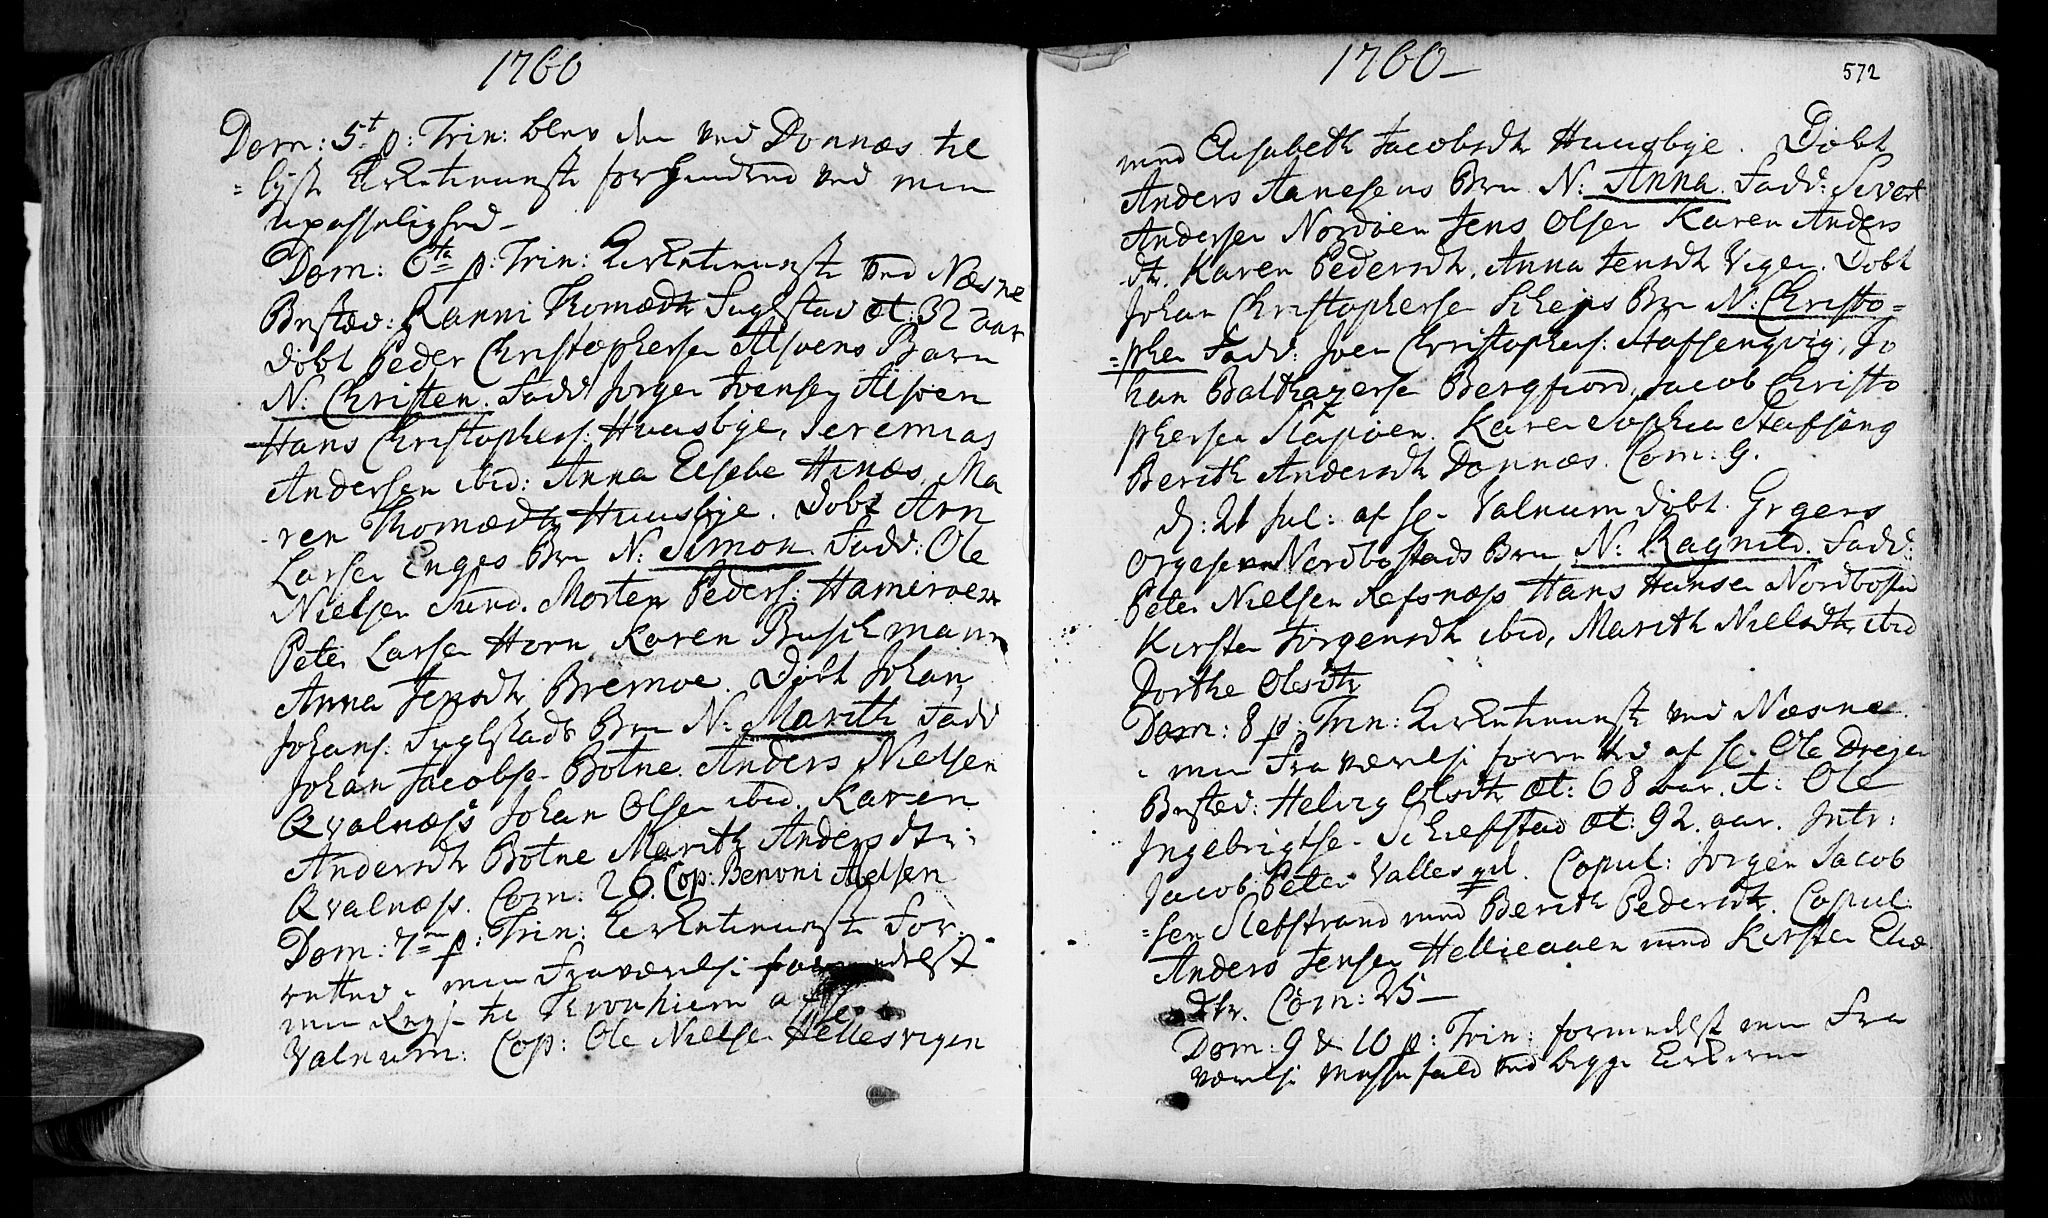 1760
Dom: 5t p: Trin: blev den ved Dønnæs til
= lyste Kirketieneste forhindred ved min
upasselighed –
Dom: 6ta p: Trin: Kirketieneste ved Næsne
Bested: Ranni Thomædtr Fuglstad æt: 32 aar
døbt Peder Christophersen Alsøens Barn
N: Christen. Fadd Jørgen Ivensen Alsøen
Hans Christophers: Huusbye, Jeremias
Andersen ibid: Anna Elsebe Hinæs, Ma
ren Thomædtr Huusbye. Døbt Arn
Larsen Enges Brn N: Simon Fadd: Ole
Nielsen Sund. Morten Peders: Hamerøen
Peter Larsen Horn Karen Buschmann
Anna Jensdtr Bremoe. Døbt Johan
Johans: Fuglstads Brn N: Marith Fadd
Johan Jacobse- Botne. Anders Nielsen
Qvalnæss Johan Olsen ibid. Karen
Andersdtr Botne Marith Andersdtr:
Qvalnæss. Com: 26. Cop: Benoni Abelsen
Dom: 7m p: Trin: Kirketieneste for-
retted i min Fraværelse formedelst
min Reyse til Tronhiem af Hr.
Valnum: Cop: Ole Nielsen Hellesvigen
1760 –
572
med Elisabeth Jacobsdtr Huusbye. Døbt
Anders Aanesens Brn N: Anna. Fadd: Sivert
Andersen Nordøen Jens Olsen Karen Anders
dtr. Karen Pedersdtr. Anna Jensdtr Vigen. Døbt
Johan Christophersen Scheys Brn N: Christo=
=pher Fadd: Joen Christophers: Stafsengvig, Jo
han Balthazersen Bergfiord, Jacob Christo
phersen Slapøen. Karen Sophia Stafseng
Berith Andersdtr Dønnæs. Com: 9.
d: 21 Jul: af Hr. Valnum døbt Grgers
Orgesen Nordbostads Brn N: Ragnild. Fadd:
Peter Nielsen Refsnæss Hans Hansen Nordbostad
Kirsten Jørgensdtr ibid, Marith Nielsdtr ibid
Dorthe Olesdtr
Dom: 8 p: Trin: Kirketieneste ved Næsne
i min Fraværelse forrettet af Hr. Ole Dreyer
Bested: Helvig Olsdtr æt: 68 aar. it: Ole
Ingebrigtse- Schiefstad æt: 92. aar. Intr:
Jacob Peter Valles qvl. Copul: Jørgen Jacob
=sen Slebstrand med Berith Pedersdtr. Copul:
Anders Jensen Hellieaaen med Kirsten Elia
Dtr. Com: 25 –
Dom: 9 & 10 p: Trin: formedelst min Fra
værelse Messefald ved begge Kirkerne